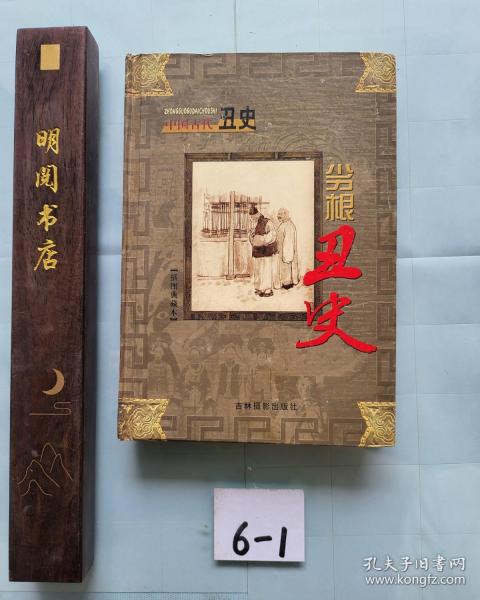 明阅书店
ZHONGGUOGUDAICHOUSHI
中国古代 丑史
劣根
丑史
【插图典藏本】
吉林摄影出版社
6-1
孔夫子旧书网
www.kongfz.com